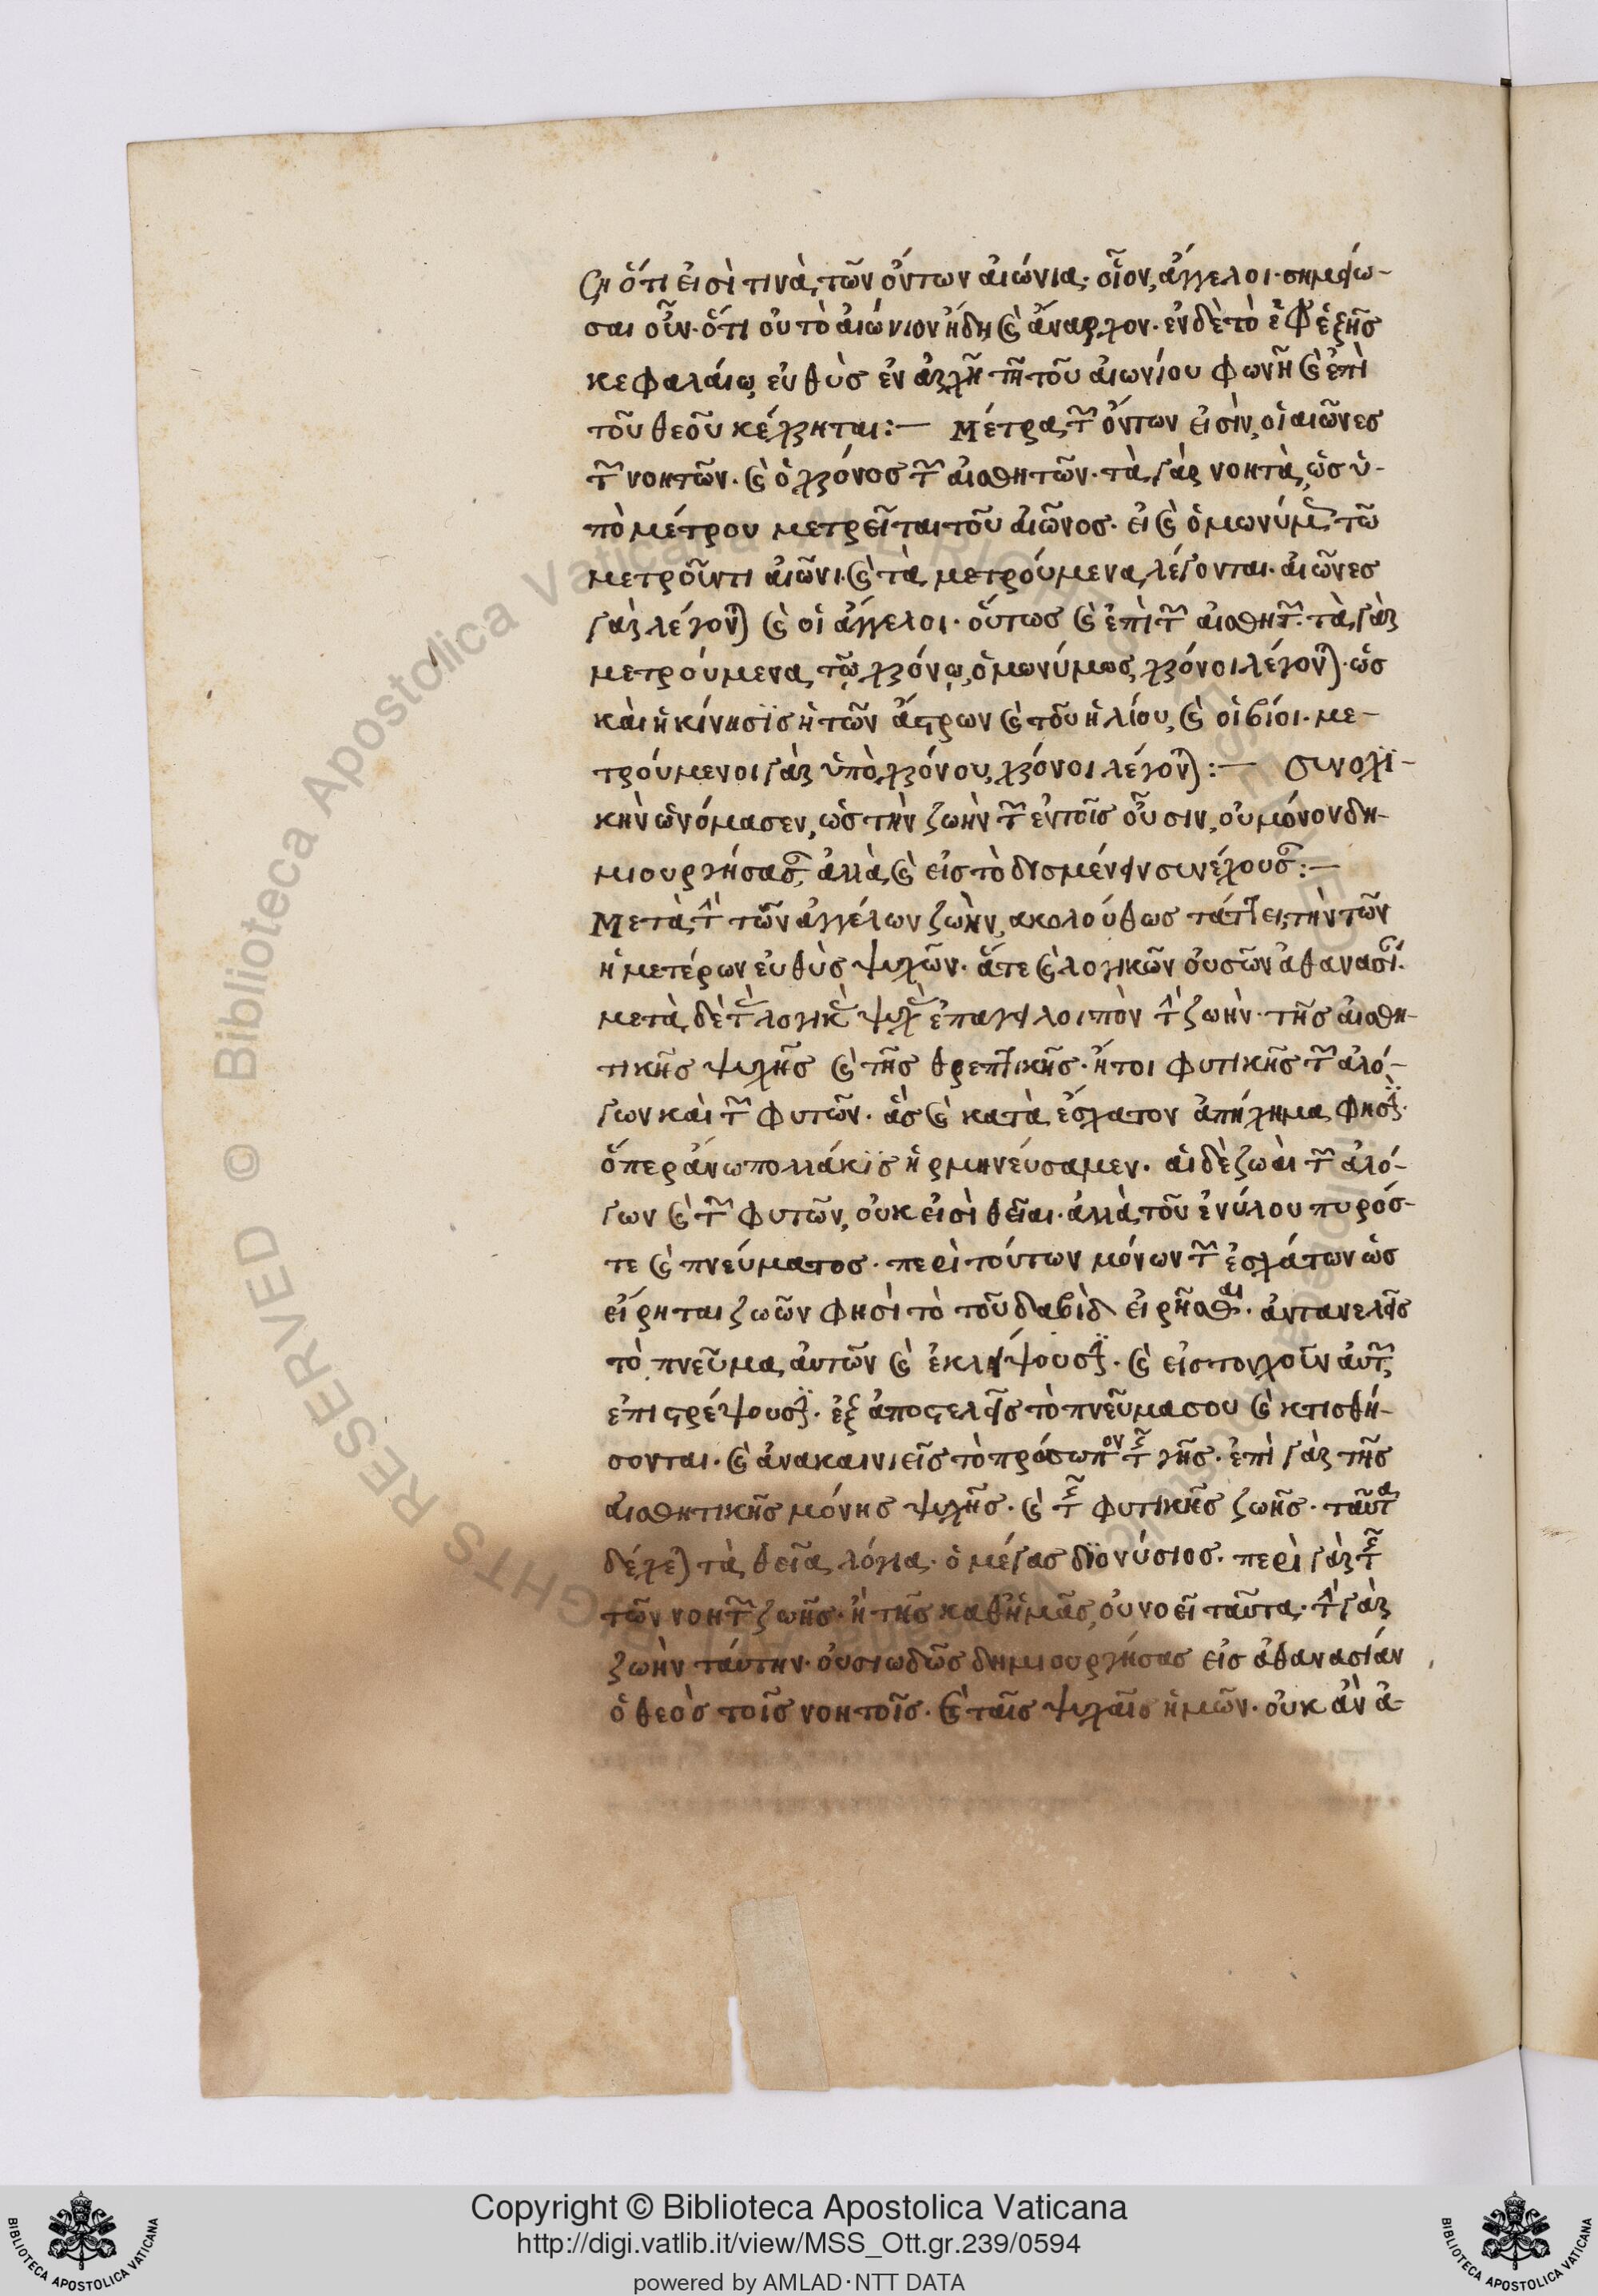 Ση ὅτι εἰσὶ τινὰ τῶν ὄντων αἰώνια· οἷον, ἄγγελοι· σημείω-
σαι οὖν· ὅτι οὐ τὸ αἰώνιον ἤδη καὶ ἄναρχον· ἐν δὲ τὸ ἐφεξῆς
κεφαλαίω, εὐθὺς ἐν ἀρχῆ τῆ τοῦ αἰωνίου φωνῆ καὶ ἐπὶ
τοῦ θεοῦ κέχρηται:— Μέτρα τῶν ὄντων εἰσὶν, οἱ αἰῶνες
τῶν νοητῶν· καὶ ὁ χρόνος τῶν αἰσθητῶν· τὰ γὰρ νοητὰ, ὡς ὑ-
πὸ μέτρου μετρεῖται τοῦ αἰῶνος· εἰ καὶ ὁμωνύμως τῶ
μετροῦντι αἰῶνι· καὶ τὰ μετρούμενα λέγονται· αἰῶνες
γὰρ λέγονται καὶ οἱ ἄγγελοι· οὕτως καὶ ἐπὶ τῶν αἰσθητῶν· τὰ γὰρ
μετρούμενα τῶ χρόνω, ὁμωνύμως χρόνοι λέγονται· ὡς
καὶ ἡ κίνησϊς ἡ τῶν ἄστρων καὶ τοῦ ἡλίου, καὶ οἱ βίοι· με-
τρούμενοι γὰρ ὑπὸ χρόνου, χρόνοι λέγονται:— συνοχϊ-
κὴν ὠνόμασεν, ὡς τὴν ζωὴν τῶν ἐν τοῖς οὖσιν, οὐ μόνον δη-
μιουργήσασαν, ἀλλὰ καὶ εἰς τὸ διαμένειν συνέχουσαν:—
Μετὰ τὴν τῶν ἀγγέλων ζωὴν, ακολούθως τάττει, τὴν τῶν
ἡμετέρων εὐθὺς ψυχῶν· ἅτε καὶ λογικῶν οὐσῶν ἀθανασί·
μετὰ δὲ τὰς λογικὰς ψυχὰς ἐπάγει λοιπὸν τὴν ζωὴν· τῆς αἰσθη-
τικῆς ψυχῆς καὶ τῆς θρεπτικῆς· ἤτοι φυτικῆς τῶν ἀλό-
γων καὶ τῶν φυτῶν· ἃς καὶ κατὰ ἔσχατον ἀπήχημα φησϊν·
ὅπερ ἄνω πολλάκϊς ἡρμηνεύσαμεν· αἱ δὲ ζωαὶ τῶν ἀλό-
γων καὶ τῶν φυτῶν, οὐκ εἰσὶ θεῖαι· ἀλλὰ τοῦ ἐνύλου πυρός-
τε καὶ πνεύματος· περὶ τούτων μόνων τῶν ἐσχάτων ὡς
εἴρηται ζωῶν φησὶ τὸ τοῦ δαβὶδ εἰρῆσθαι· ἀντανελεῖς
τὸ πνεῦμα αὐτῶν καὶ ἐκλείψουσϊν· καὶ εἰς τον χοῦν αὐτῶν
ἐπιστρέψουσϊν· ἐξαποστελεῖς τὸ πνεῦμα σου καὶ κτισθή-
σονται· καὶ ἀνακαινιεῖς τὸ πρόσωπον τῆς γῆς· ἐπὶ γὰρ τῆς
αἰσθητικῆς μόνης ψυχῆς· καὶ τῆς φυτικῆς ζωῆς· ταῦτα
δέχεται τὰ θεῖα λόγια· ὁ μέγας διονύσιος· περὶ γὰρ τῆς
τῶν νοητῶν ζωῆς· ἢ τῆς καθ' ἡμᾶς, οὐ νοεῖ ταῦτα· τὴν γὰρ
ζωὴν ταύτην· οὐσιωδῶς δημιουργήσας εἰς ἀθανασίαν
ὁ θεὸς τοῖς νοητοῖς· καὶ ταῖς ψυχαῖς ἡμῶν· οὐκ ἂν ἀ-
Copyright © Biblioteca Apostolica Vaticana
http://digi.vatlib.it/view/MSS_Ott.gr.239/0594
powered by AMLAD·NTT DATA
BIBLIOTECA APOSTOLICA VATICANA
BIBLIOTECA APOSTOLICA VATICANA